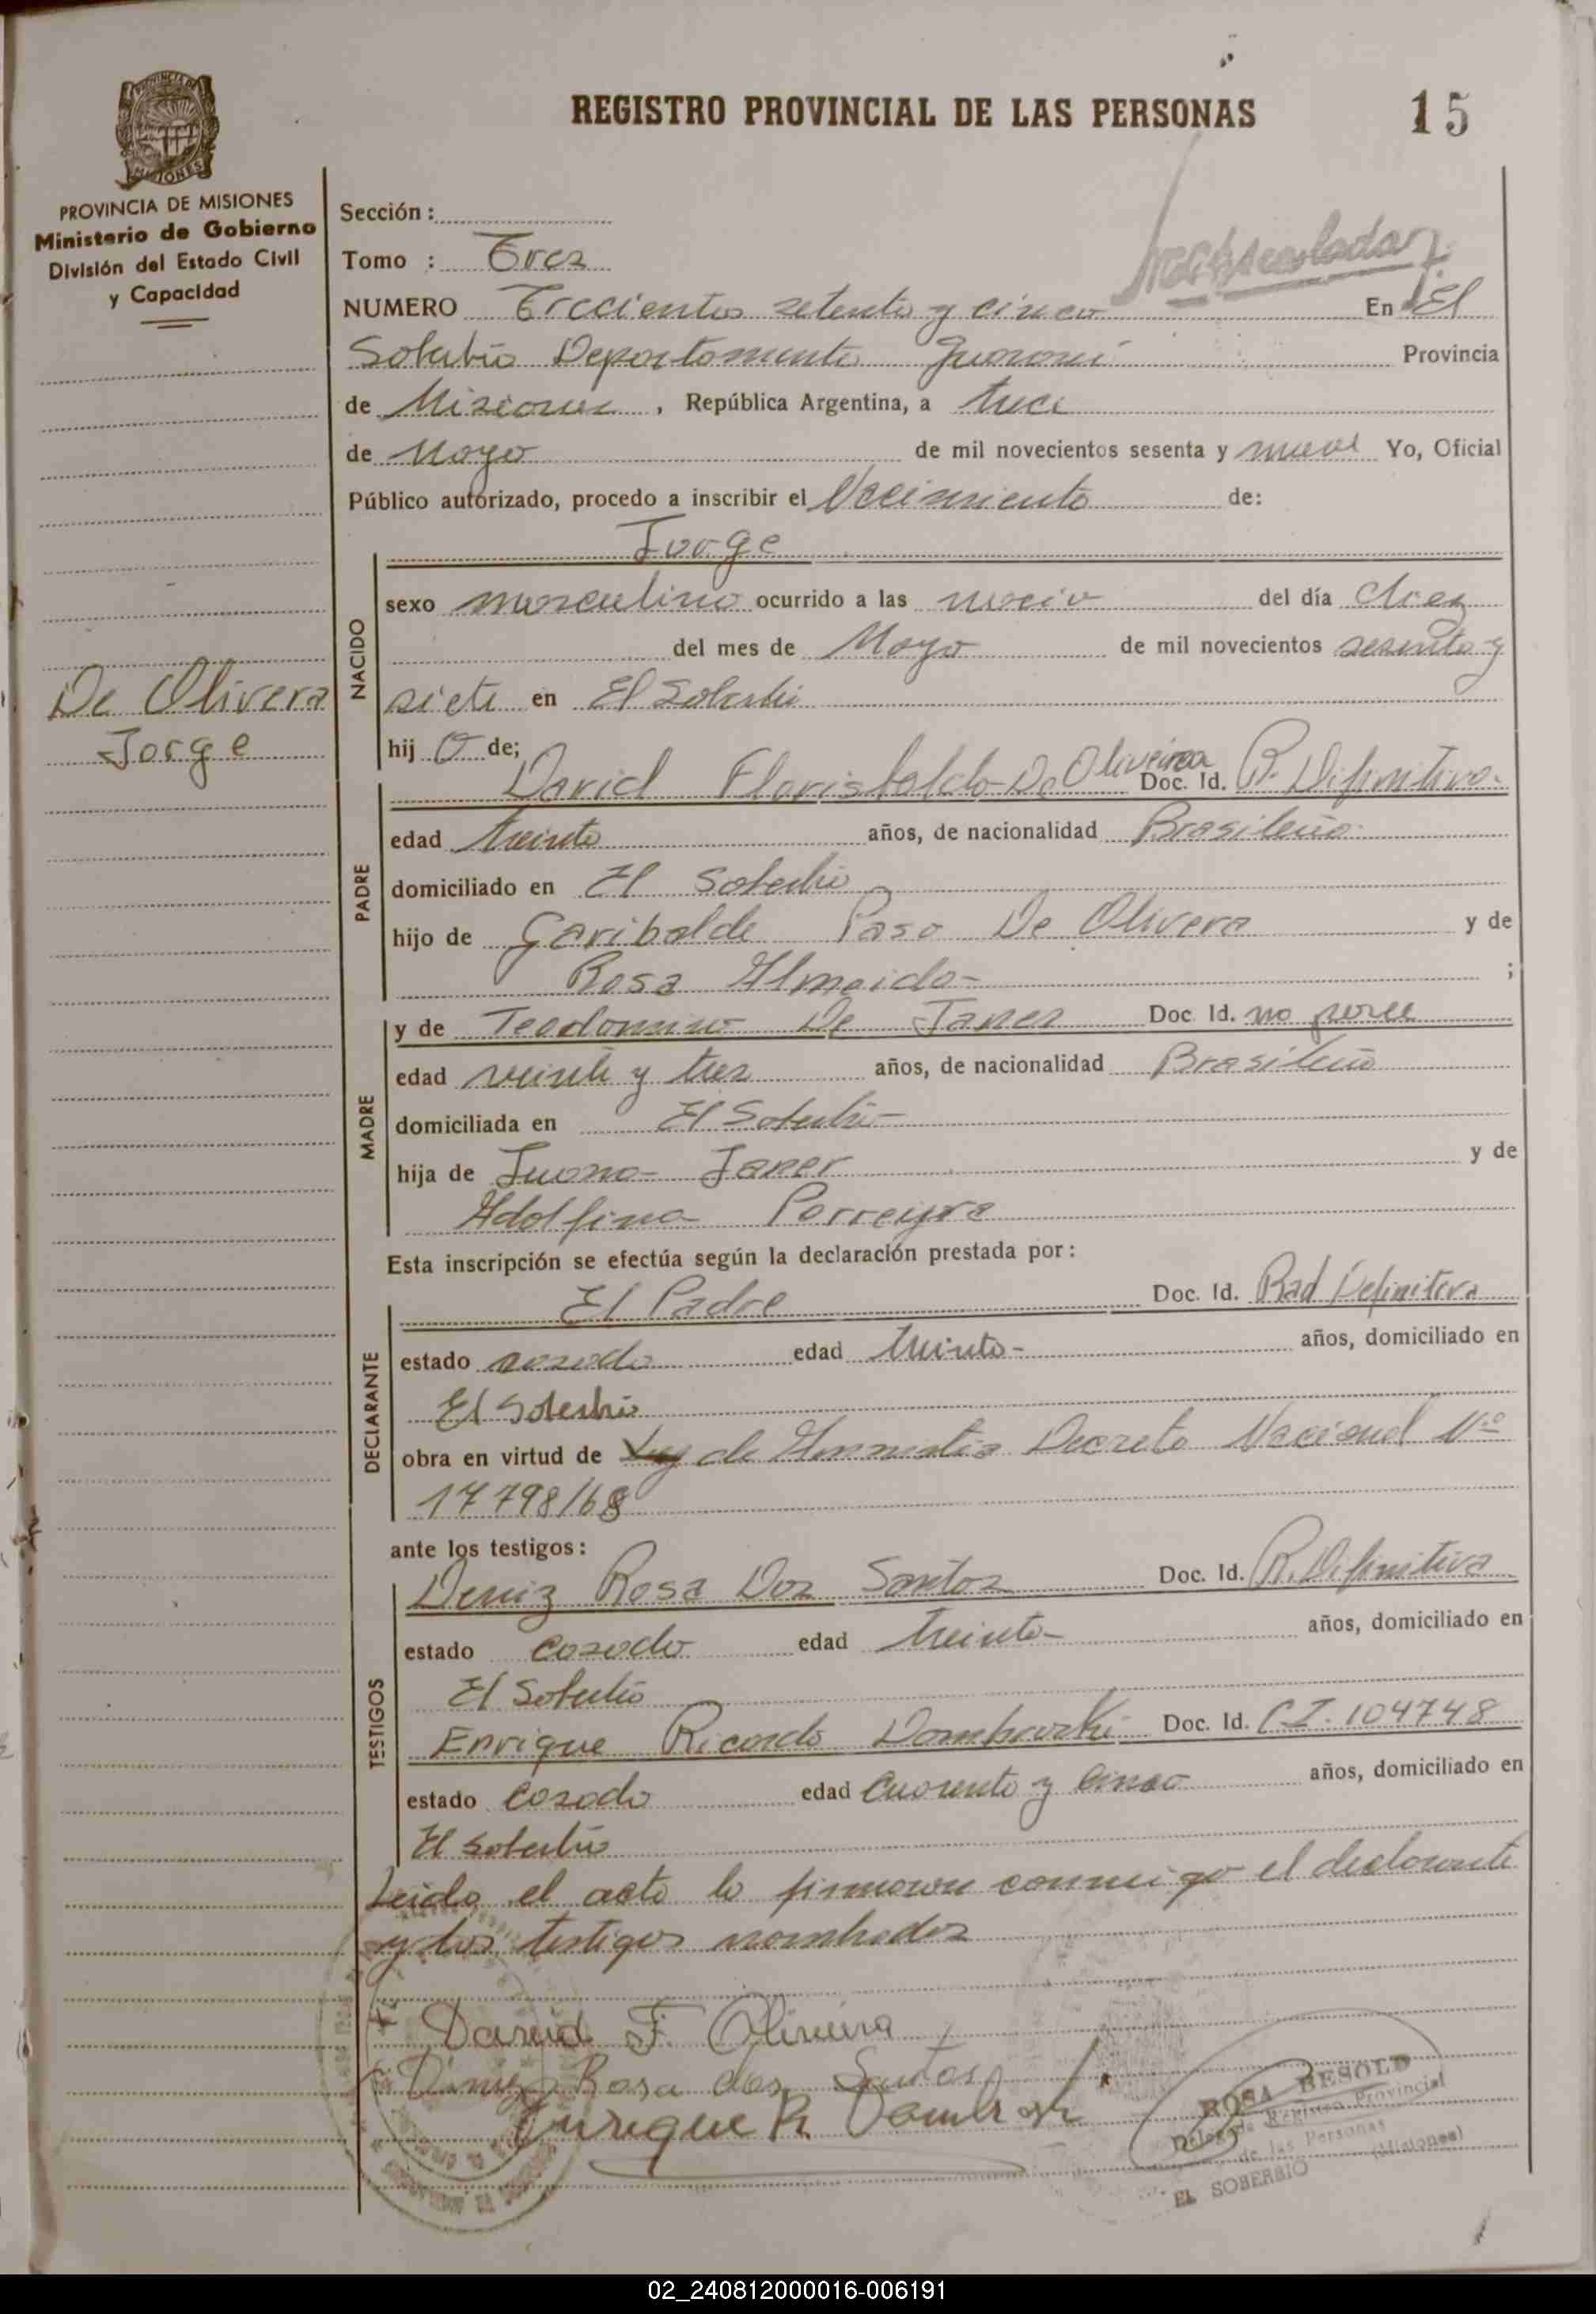 REGISTRO PROVINCIAL DE LAS PERSONAS
15
PROVINCIA DE MISIONES
Ministerio de Gobierno
División del Estado Civil
y Capacidad
De Olivera
Jorge
Sección :
Tomo : Tres
NUMERO Trecientos setenta y cinco En El
Soberbio Departamento Guarani Provincia
de Misiones , República Argentina, a trece
de Mayo de mil novecientos sesenta y nueve Yo, Oficial
Público autorizado, procedo a inscribir el Nacimiento de:
Jorge
NACIDO
sexo masculino ocurrido a las del día diez
del mes de Mayo de mil novecientos sesenta y
siete en El Soberbio
hij o de;
PADRE
David Floristaldo De Oliveira Doc. Id. R. Difinitiva.
edad treinta años, de nacionalidad Brasileño
domiciliado en El Soberbio
hijo de Garibalde Paso De Olivera y de
Rosa Almeida - ;
MADRE
y de De Janer Doc Id. no posee
edad veinte y tres años, de nacionalidad Brasileña
domiciliada en El Soberbio -
hija de Janer y de
Adolfina Porreyra
Esta inscripción se efectúa según la declaración prestada por :
DECLARANTE
El Padre Doc. Id. Rad Definitiva
estado casado edad treinta - años, domiciliado en
El Soberbio
obra en virtud de Ley de Amnistia Decreto Nacional Nº
17798/68
ante los testigos :
TESTIGOS
Deniz Rosa Dos Santos Doc. Id. R. Difinitiva
estado casado edad treinta - años, domiciliado en
El Soberbio
Enrique Ricardo Doc. Id. C.I. 104748
estado casado edad cuarenta y cinco años, domiciliado en
El Soberbio
Leida el acta la firmaron conmigo el declarante
y los testigos nombrados
David F. Oliveira
Diniz Rosa dos Santos
Enrique R.
ROSA BESOLD
Delegada Registro Provincial
de las Personas
EL SOBERBIO (Misiones)
02_240812000016-006191